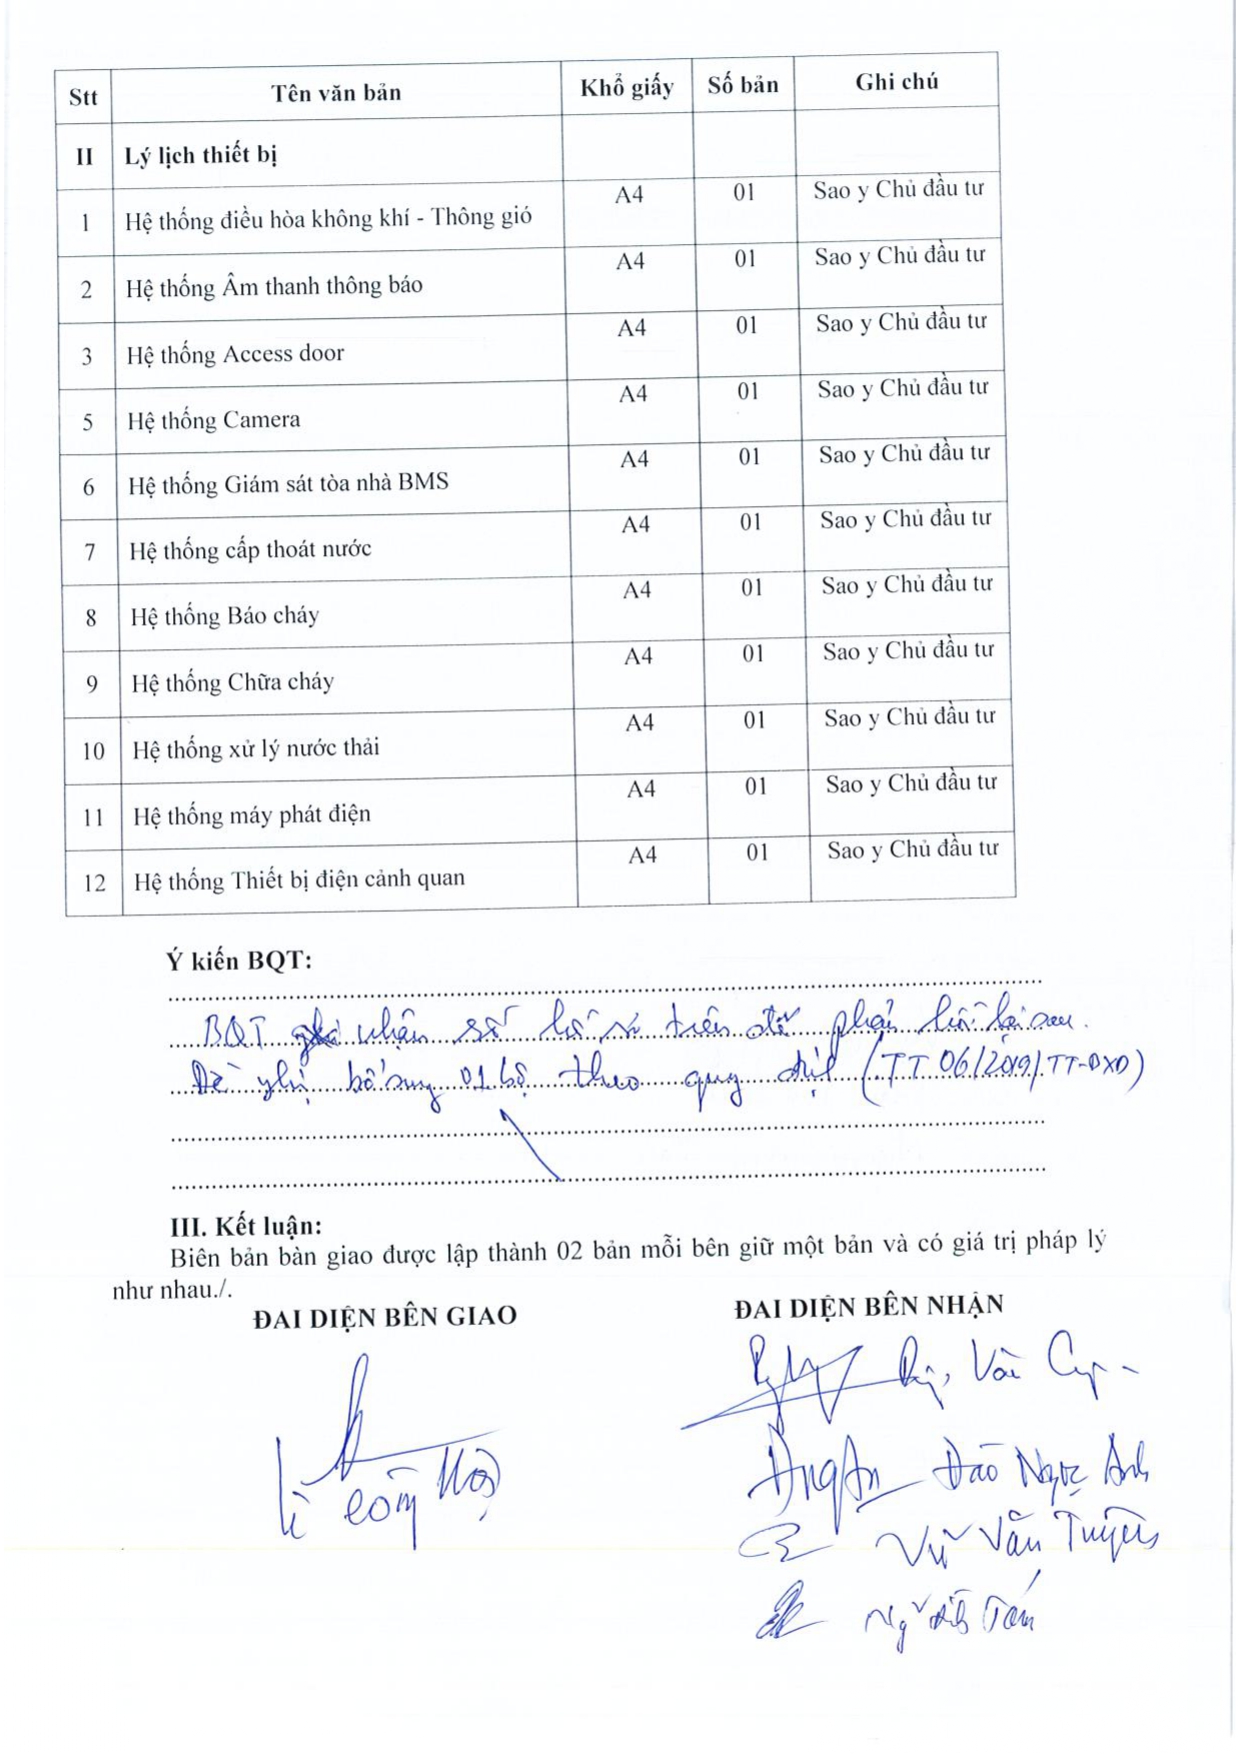 Stt Tên văn bản Khổ giấy Số bản Ghi chú
II Lý lịch thiết bị
1 Hệ thống điều hòa không khí - Thông gió A4 01 Sao y Chủ đầu tư
2 Hệ thống Âm thanh thông báo A4 01 Sao y Chủ đầu tư
3 Hệ thống Access door A4 01 Sao y Chủ đầu tư
5 Hệ thống Camera A4 01 Sao y Chủ đầu tư
6 Hệ thống Giám sát tòa nhà BMS A4 01 Sao y Chủ đầu tư
7 Hệ thống cấp thoát nước A4 01 Sao y Chủ đầu tư
8 Hệ thống Báo cháy A4 01 Sao y Chủ đầu tư
9 Hệ thống Chữa cháy A4 01 Sao y Chủ đầu tư
10 Hệ thống xử lý nước thải A4 01 Sao y Chủ đầu tư
11 Hệ thống máy phát điện A4 01 Sao y Chủ đầu tư
12 Hệ thống Thiết bị điện cảnh quan A4 01 Sao y Chủ đầu tư
Ý kiến BQT:
BQT ghi nhận số hồ sơ trên phản hồi lại sau.
Đề nghị bổ sung 01 bộ theo quy định (TT 06/2019/TT-BXD)
III. Kết luận:
Biên bản bàn giao được lập thành 02 bản mỗi bên giữ một bản và có giá trị pháp lý
như nhau./.
ĐAI DIỆN BÊN GIAO ĐAI DIỆN BÊN NHẬN
Đào Ngọc Anh
Vũ Văn Tuyên